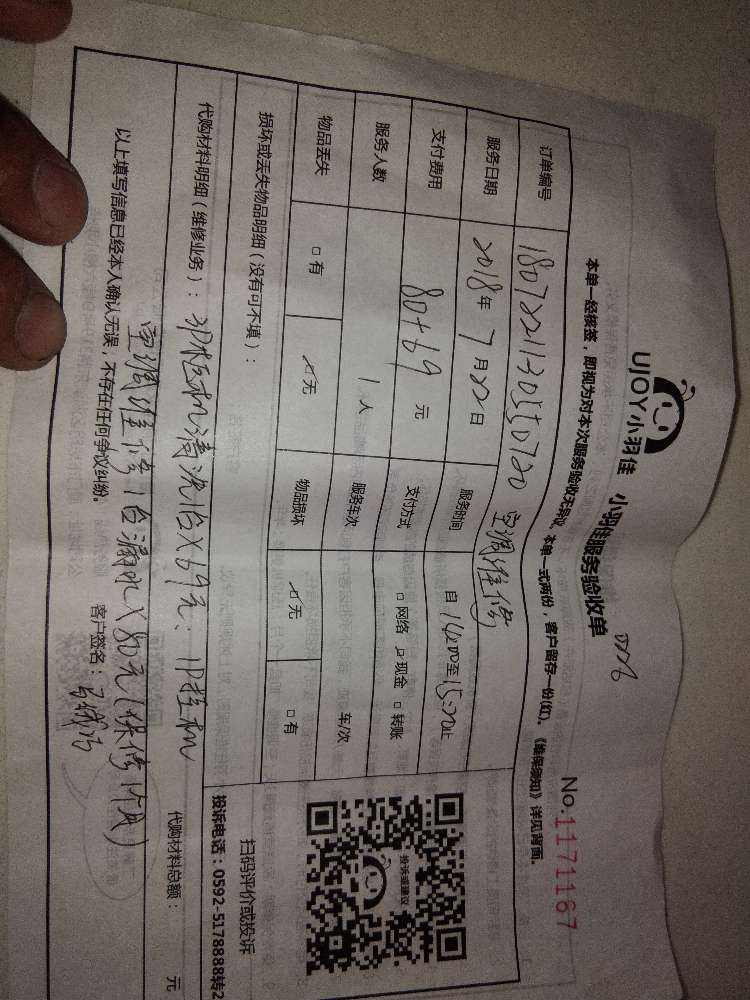 UJOY小羽佳 小羽佳服务验收单
No.1171167
本单一经核签，即视为对本次服务验收无异议。本单一式两份，客户留存一份(红)。《维保须知》详见背面。
订单编号 空调维修
服务日期 2018年7月22日 服务时间 自14:00至15:20止
支付费用 80+69 元 支付方式 □网络 ☑现金 □转账
服务人数 1人 服务车次 车/次
物品丢失 □有 ☑无 物品损坏 ☑无 □有
损坏或丢失物品明细（没有可不填）：
扫码评价或投诉
投诉电话：0592-5178888转2
投诉或建议
代购材料明细（维修业务）：3P柜机清洗1台X69元、1P挂机
空调维修1台漏水X80元(保修1个月)
代购材料总额： 元
以上填写信息已经本人确认无误，不存在任何争议纠纷。 客户签名：